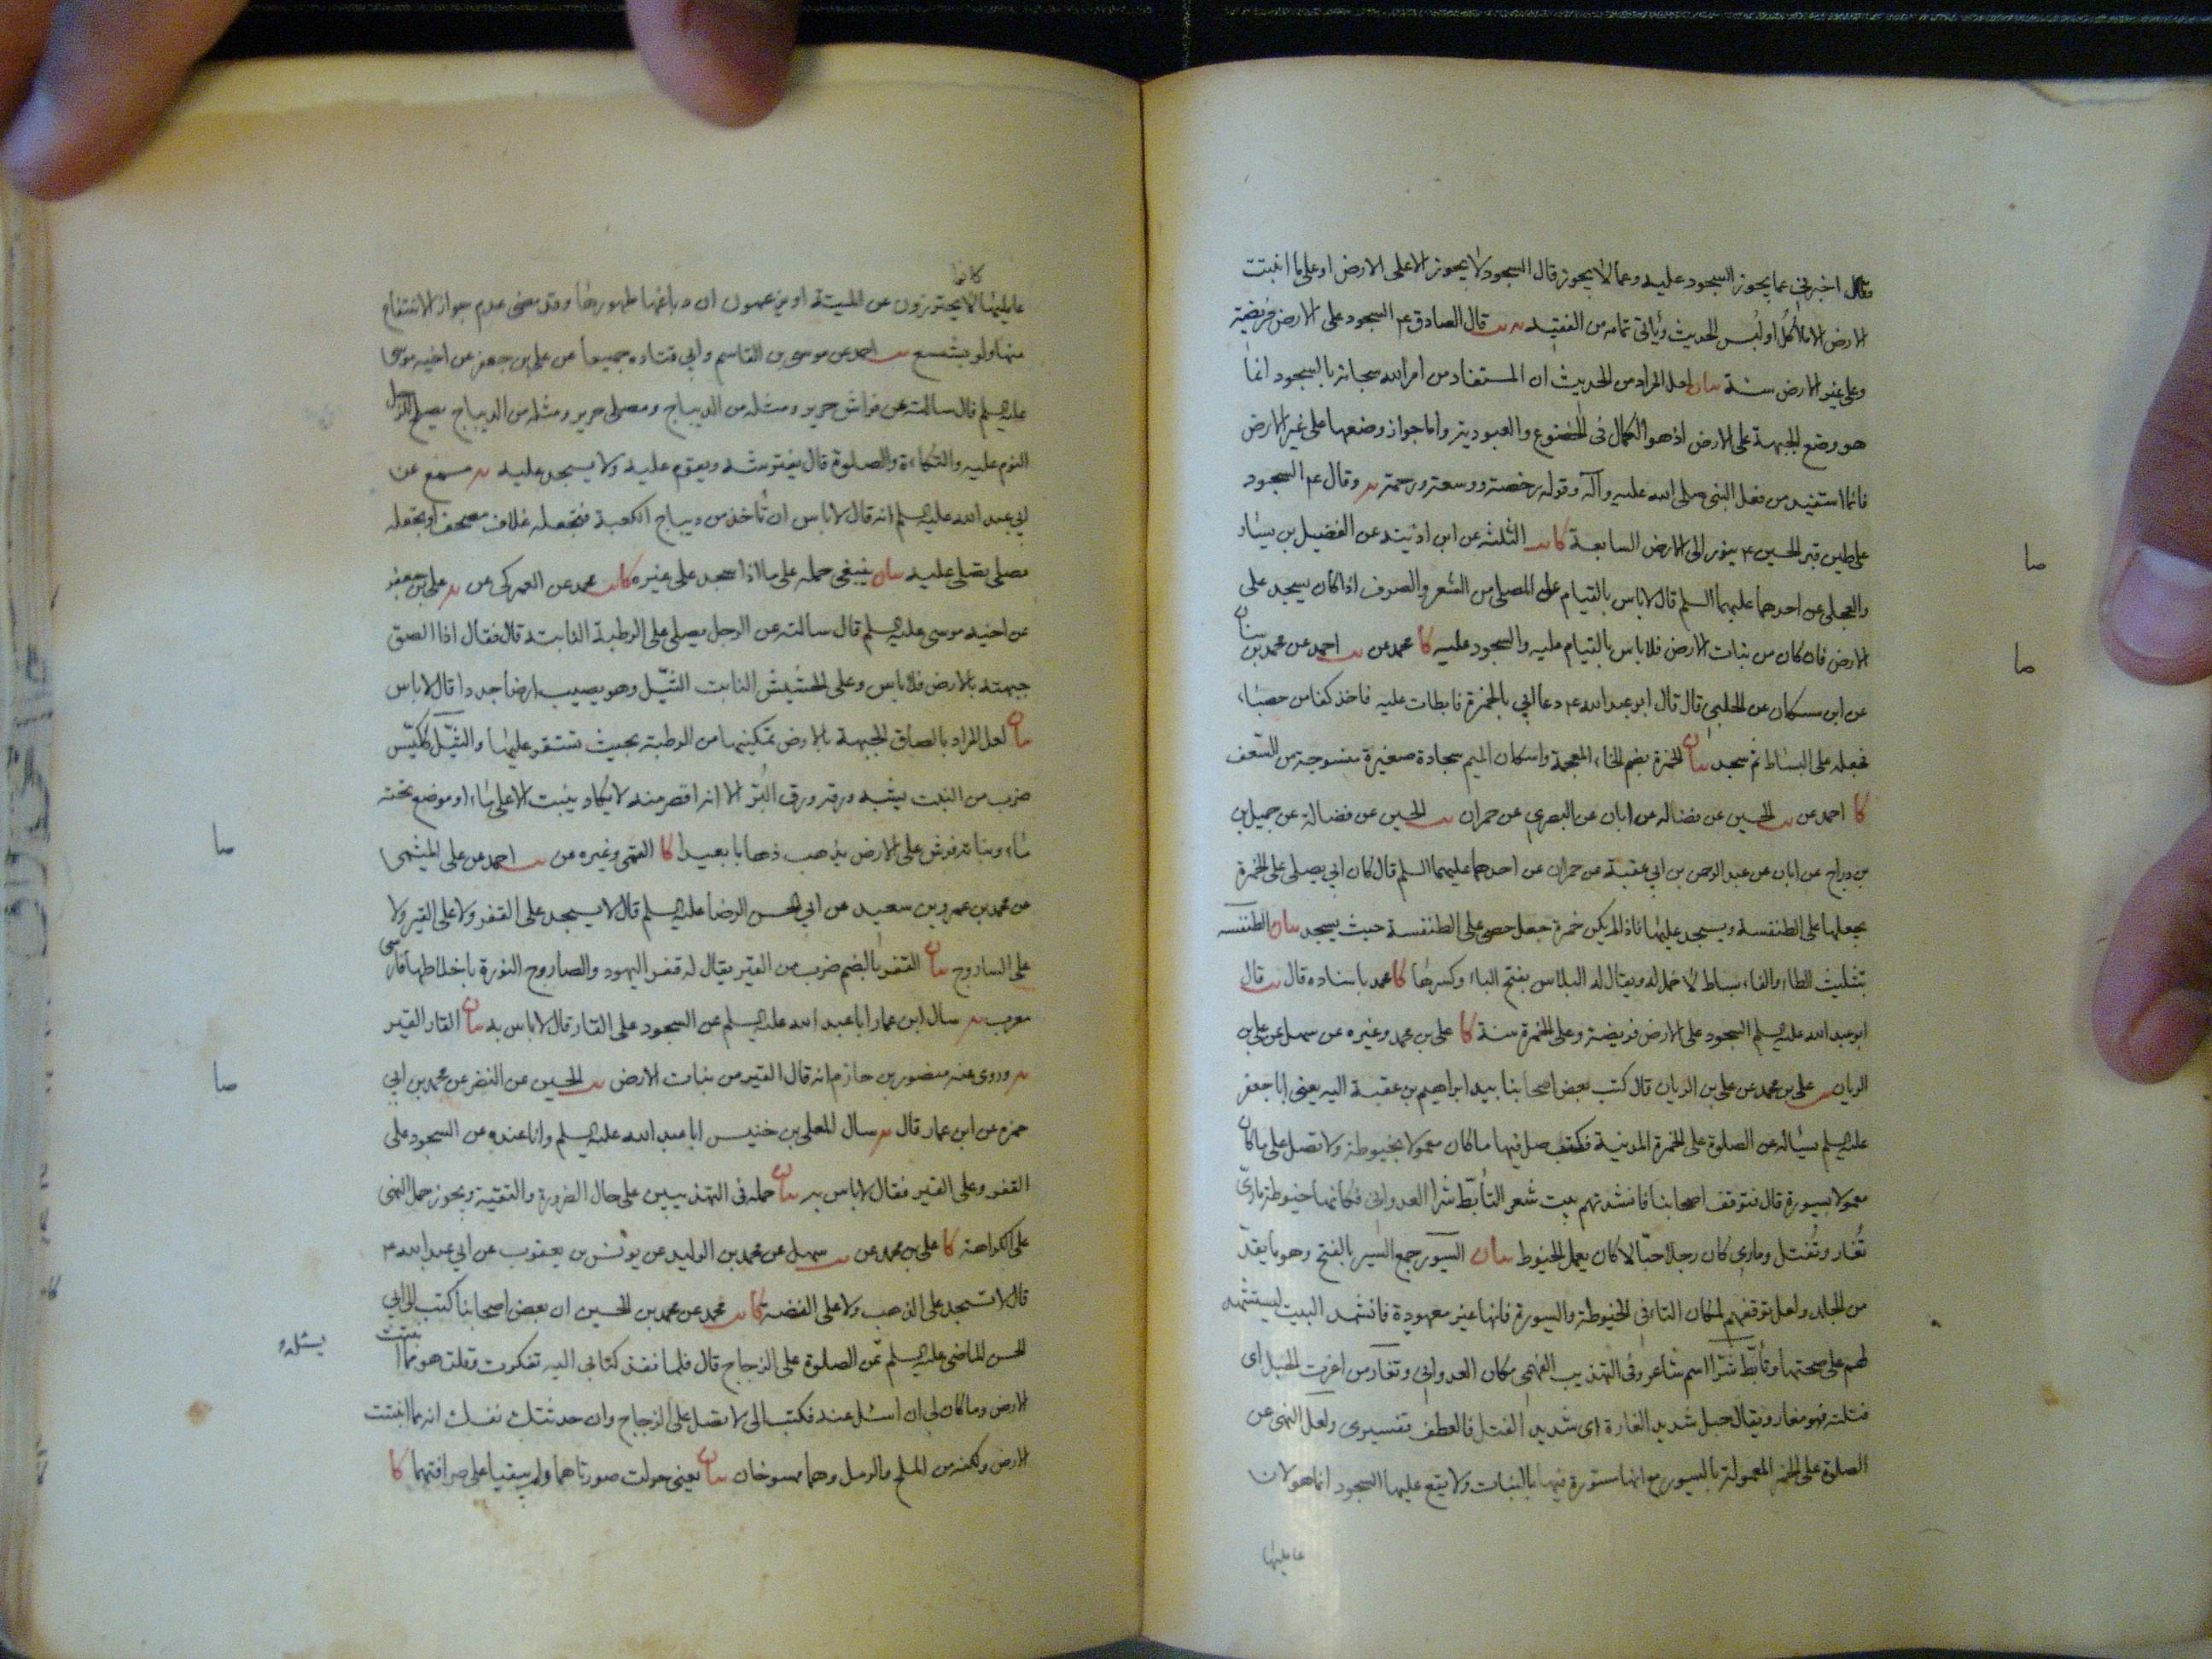 وقال اخبرني عما يجوز السجود عليه وعما لا يجوز قال السجود لا يجوز الا على الارض او على ما انبتت
الارض الا ما اكل او لبس الحديث ويأتي تمامه من الفقيه يه قال الصادق ع السجود على الارض فريضة
وعلى غير الارض سنة بيان لعل المراد من الحديث ان المستفاد من امر الله سبحانه بالسجود انما
هو وضع الجبهة على الارض اذ هو الكمال في الخضوع والعبودية واما جواز وضعها على غير الارض
فانما استفيد من فعل النبي صلى الله عليه وآله وقوله رخصة ووسعة ورحمة يه وقال ع السجود
على طين قبر الحسين ع ينور الى الارض السابعة كا يب الثلثة عن ابن اذينة عن الفضيل بن يسار
والعجلي عن احدهما عليهما السلم قال لا باس بالقيام على المصلى من الشعر والصوف اذا كان يسجد على
الارض فان كان من نبات الارض فلا باس بالقيام عليه والسجود عليه كا محمد عن يب احمد عن محمد بن سنان
عن ابن مسكان عن الحلبي قال قال ابو عبد الله ع دعا ابي بالخمرة فابطات عليه فاخذ كفا من حصباء
فجعله على البساط ثم سجد بيان الخمرة بضم الخاء المعجمة واسكان الميم سجادة صغيرة منسوجة من السعف
كا احمد عن يب الحسين عن فضالة عن ابان عن البصري عن حمران يب الحسين عن فضالة عن جميل بن
بن دراج عن ابان عن عبد الرحمن بن ابي عقبة عن حمران عن احدهما عليهما السلم قال كان ابي يصلي على الخمرة
يجعلها على الطنفسة ويسجد عليها فاذا لم يكن خمرة جعل حصى على الطنفسة حيث يسجد بيان الطنفسه
بتثليث الطاء والفاء بساط لا خمل له ويقال له البلاس بفتح الباء وكسرها كا محمد باسناده قال يب قال
ابو عبد الله عليه السلم السجود على الارض فريضة وعلى الخمرة سنة كا علي بن محمد وغيره عن سهل عن علي بن
الريان يب علي بن محمد عن علي بن الريان قال كتب بعض اصحابنا بيد ابراهيم بن عقبة اليه يعني ابا جعفر
عليه السلم يسأله عن الصلوة على الخمرة المدنية فكتب صل فيها ما كان معمولا بخيوطة ولا تصل على ما كان
معمولا بسيورة قال فتوقف اصحابنا فانشدتهم بيت شعر التأبّط شرا العدواني فكأنها خيوطة ماريّ
تُغار وتُفتل وماري كان رجلا حبّالا كان يعمل الخيوط بيان السيور جمع السير بالفتح وهو ما يقدّ
من الجلد ولعل توقفهم لمكان التاء في الخيوطة والسيورة فانها غير معهودة فانشد البيت ليستشهد
لهم على صحتها وتأبّط شرّا اسم شاعر وفي التهذيب الفهمي مكان العدواني وتغار من اغرت الحبل اي
فتلته فهو مغار ويقال حبل شديد الغارة اي شديد الفتل فالعطف تفسيري ولعل النهي عن
الصلوة على الخمر المعمولة بالسيور مع انها مستورة فيها بالنبات ولا يقع عليها السجود انما هو لان
عامليها
صا
صا
كانوا
عامليها لا يحترزون عن الميتة او يزعمون ان دباغها طهورها وقد مضى عدم جواز الانتفاع
منها ولو بشسع يب احمد عن موسى بن القاسم وابي قتاده جميعا عن علي بن جعفر عن اخيه موسى
عليه السلم قال سالته عن فراش حرير ومثله من الديباج ومصلى حرير ومثله من الديباج يصلح للرجل
النوم عليه والتكاءة والصلوة قال يفترشه ويقوم عليه ولا يسجد عليه يه مسمع عن
ابي عبد الله عليه السلم انه قال لا باس ان تأخذ من ديباج الكعبة فتجعله غلاف مصحف او تجعله
مصلى تصلي عليه بيان ينبغي حمله على ما اذا سجد على غيره كا يب محمد عن العمركي عن يه علي بن جعفر
عن اخيه موسى عليه السلم قال سالته عن الرجل يصلي على الرطبة النابتة قال فقال اذا الصق
جبهته بالارض فلا باس وعلى الحشيش النابت الثيّل وهو يصيب ارضا جددا قال لا باس
بيان لعل المراد بالصاق الجبهة بالارض تمكينها من الرطبة بحيث تستقر عليها والثيّل ككيّس
ضرب من النبت يشبه ورقه ورق البُرّ الا انه اقصر منه لا يكاد ينبت الا على ماء او موضع تحته
ماء ونباته فرش على الارض يذهب ذهابا بعيدا كا القمي وغيره عن يب احمد عن علي الميثمي
عن محمد بن عمرو بن سعيد عن ابي الحسن الرضا عليه السلم قال لا يسجد على القفر ولا على القير ولا
على الساروج بيان القفر بالضم ضرب من القير يقال له قفر اليهود والصاروج النورة باخلاطها فارسي
معرب يه سال ابن عمار ابا عبد الله عليه السلم عن السجود على القار قال لا باس به بيان القار القير
يه وروى عنه منصور بن حازم انه قال القير من نبات الارض يب الحسين عن النضر عن محمد بن ابي
حمزه عن ابن عمار قال يه سال المعلى بن خنيس ابا عبد الله عليه السلم وانا عنده عن السجود على
القفر وعلى القير فقال لا باس به بيان حمله في التهذيبين على حال الضرورة والتقية ويجوز حمل النهي
على الكراهة كا علي بن محمد عن يب سهل عن محمد بن الوليد عن يونس بن يعقوب عن ابي عبد الله ع
قال لا تسجد على الذهب ولا على الفضة كا يب محمد عن محمد بن الحسين ان بعض اصحابنا كتب الى ابي
الحسن الماضي عليه السلم عن الصلوة على الزجاج قال فلما نفذ كتابي اليه تفكرت وقلت هو مما انبتت
يسئله
الارض وما كان لي ان اسئل عنه فكتب الي لا تصل على الزجاج وان حدثتك نفسك انه مما انبتت
الارض ولكنه من الملح والرمل وهما ممسوخان بيان يعني حولت صورتاهما ولم يبقيا على صرافتهما كا
صا
صا